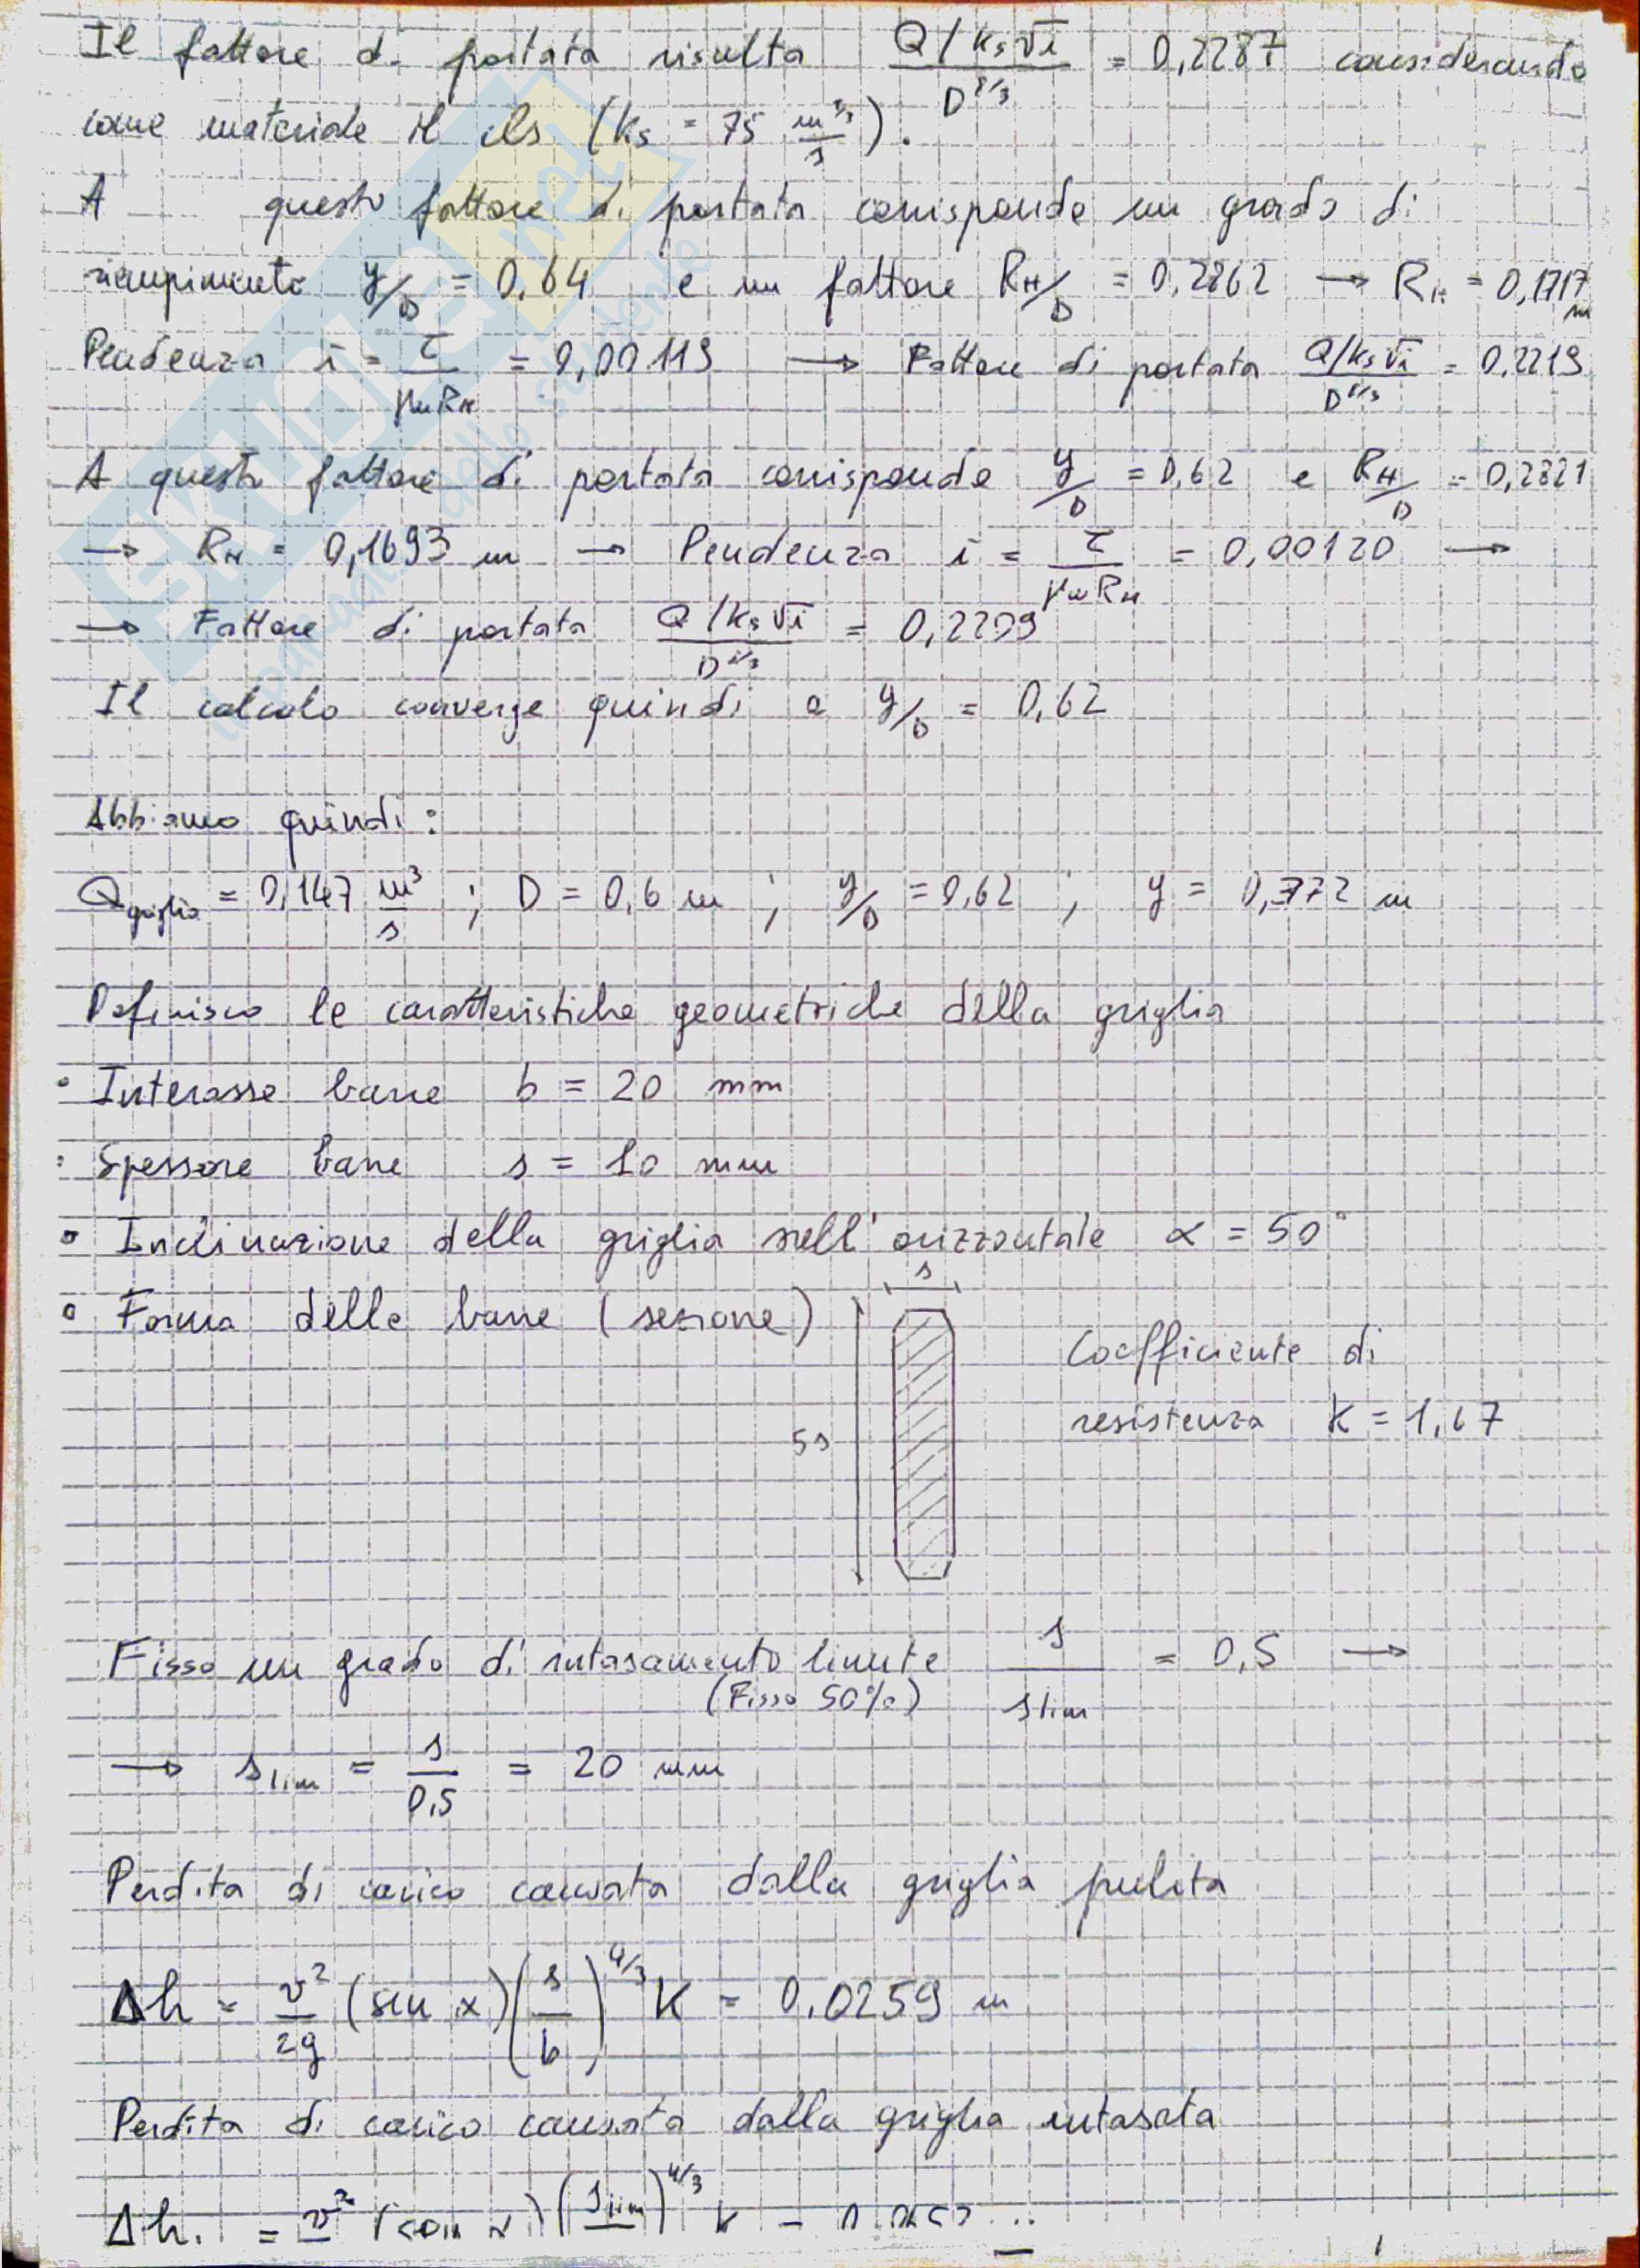 Il fattore di portata risulta Q/ks√i / D^8/3 = 0,2287 considerando
come materiale il cls (ks = 75 m^1/3 / s).
A questo fattore di portata corrisponde un grado di
riempimento y/D = 0,64 e un fattore RH/D = 0,2862 → RH = 0,1717 m
Pendenza i = τ / γw RH = 0,00119 → Fattore di portata Q/ks√i / D^8/3 = 0,2219
A questo fattore di portata corrisponde y/D = 0,62 e RH/D = 0,2821
→ RH = 0,1693 m → Pendenza i = τ / γw RH = 0,00120 →
→ Fattore di portata Q/ks√i / D^8/3 = 0,2209
Il calcolo converge quindi a y/D = 0,62
Abbiamo quindi:
Qgriglia = 0,147 m³/s ; D = 0,6 m ; y/D = 0,62 ; y = 0,372 m
Definisco le caratteristiche geometriche della griglia
• Interasse barre b = 20 mm
• Spessore barre s = 10 mm
• Inclinazione della griglia sull'orizzontale α = 50°
• Forma delle barre (sezione)
s
5s
Coefficiente di
resistenza K = 1,67
Fisso un grado di intasamento limite s / slim = 0,5 →
(Fisso 50%)
→ slim = s / 0,5 = 20 mm
Perdita di carico causata dalla griglia pulita
Δh = v²/2g (sin α)(s/b)^4/3 K = 0,0259 m
Perdita di carico causata dalla griglia intasata
Δh. = v² (sin α)(slim)^4/3 K =
SKUOLA.net